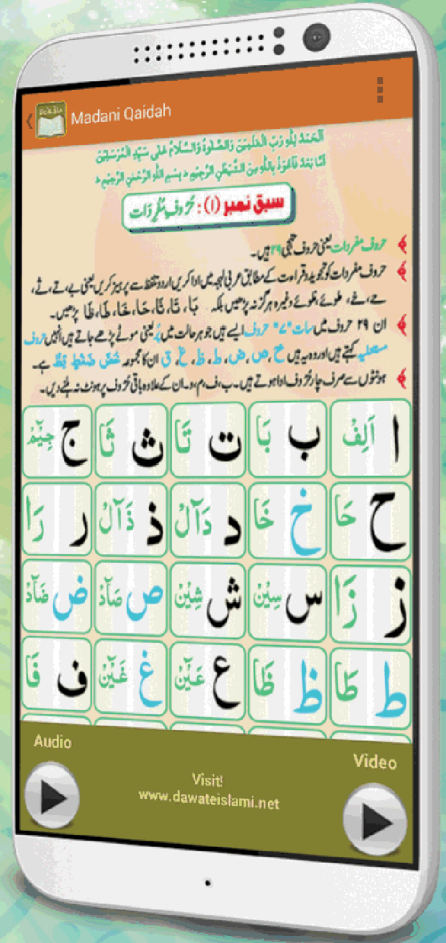 Madani Qaidah
اَلْحَمْدُ لِلّٰهِ رَبِّ الْعٰلَمِيْنَ وَالصَّلٰوةُ وَالسَّلَامُ عَلٰى سَيِّدِ الْمُرْسَلِيْنَ
اَمَّا بَعْدُ فَاَعُوْذُ بِاللّٰهِ مِنَ الشَّيْطٰنِ الرَّجِيْمِ ط بِسْمِ اللّٰهِ الرَّحْمٰنِ الرَّحِيْمِ ط
سبق نمبر (۱): حُرُوفِ مُفْرَدَات
حروف مفردات یعنی حروف تہجی ۲۹ ہیں۔
حروف مفردات کو تجوید و قراءت کے مطابق عربی لہجہ میں ادا کریں اردو تلفظ سے پرہیز کریں یعنی بے، تے، ثے،
حے، خے، طوئے، ظوئے وغیرہ ہرگز نہ پڑھیں بلکہ بَا، تَا، ثَا، حَا، خَا، طَا، ظَا پڑھیں۔
ان ۲۹ حروف میں سات "۷" حروف ایسے ہیں جو ہر حالت میں پُر یعنی موٹے پڑھے جاتے ہیں انہیں حروف
مستعلیہ کہتے ہیں اور وہ یہ ہیں خ، ص، ض، ط، ظ، غ، ق ان کا مجموعہ خُصَّ ضَغْطٍ قِظْ ہے۔
ہونٹوں سے صرف چار حُرُوف ادا ہوتے ہیں۔ ب، ف، م، و۔ ان کے علاوہ باقی حُرُوف پر ہونٹ نہ ہلنے دیں۔
ا اَلِفْ ب بَا ت تَا ث ثَا ج جِيْمْ
ح حَا خ خَا د دَآلْ ذ ذَآلْ ر رَا
ز زَا س سِيْنْ ش شِيْنْ ص صَآدْ ض ضَآدْ
ط طَا ظ ظَا ع عَيْنْ غ غَيْنْ ف فَا
Audio
Visit!
Video
www.dawateislami.net